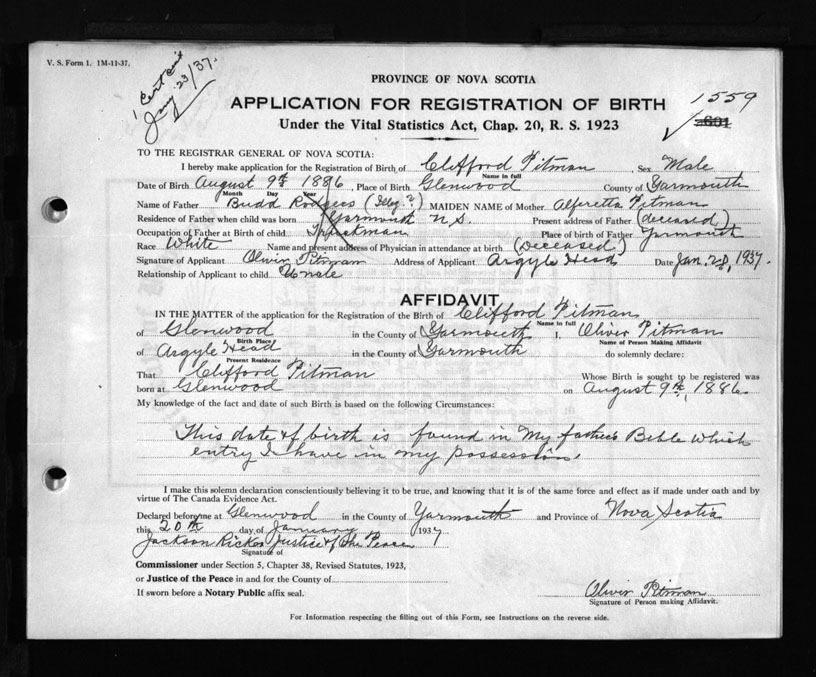 V. S. Form 1. 1M-11-37.
Jany 23/37.
PROVINCE OF NOVA SCOTIA
APPLICATION FOR REGISTRATION OF BIRTH
1559
Under the Vital Statistics Act, Chap. 20, R. S. 1923
TO THE REGISTRAR GENERAL OF NOVA SCOTIA:
I hereby make application for the Registration of Birth of Clifford Pitman Sex Male
Name in full
Date of Birth August 9th 1886, Place of Birth Glenwood County of Yarmouth
Month Day Year
Name of Father Budd Rodgers (Illeg.?) MAIDEN NAME of Mother Alferetta Pitman
Residence of Father when child was born Yarmouth N S. Present address of Father (deceased)
Occupation of Father at Birth of child Truckman Place of birth of Father Yarmouth
Race White Name and present address of Physician in attendance at birth (Deceased)
Signature of Applicant Oliver Pitman Address of Applicant Argyle Head Date Jan. 1937.
Relationship of Applicant to child Uncle
AFFIDAVIT
IN THE MATTER of the application for the Registration of the Birth of Clifford Pitman
Name in full
of Glenwood in the County of Yarmouth I, Oliver Pitman
Birth Place
Name of Person Making Affidavit
of Argyle Head in the County of Yarmouth do solemnly declare:
Present Residence
That Clifford Pitman Whose Birth is sought to be registered was
born at Glenwood on August 9th, 1886.
My knowledge of the fact and date of such Birth is based on the following Circumstances:
This date of birth is found in my father's Bible which
entry I have in my possession.
I make this solemn declaration conscientiously believing it to be true, and knowing that it is of the same force and effect as if made under oath and by
virtue of The Canada Evidence Act.
Declared before me at Glenwood in the County of Yarmouth and Province of Nova Scotia
this 20th day of January 1937
Jackson Ricker Justice of the Peace
Signature of
Commissioner under Section 5, Chapter 38, Revised Statutes, 1923,
or Justice of the Peace in and for the County of
If sworn before a Notary Public affix seal.
Oliver Pitman
Signature of Person making Affidavit.
For Information respecting the filling out of this Form, see Instructions on the reverse side.